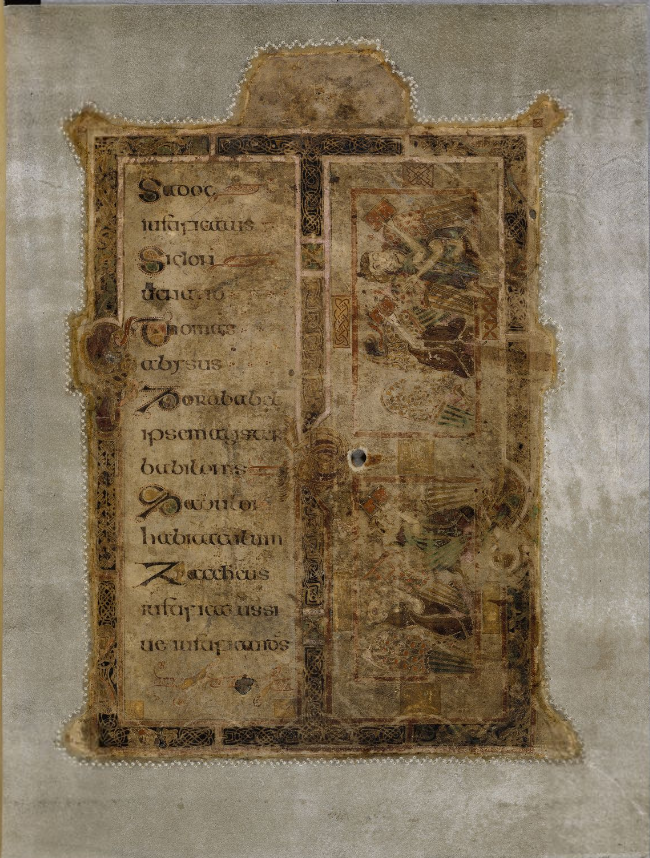 Sadoc
iustificatus
Sidon
uenatio
Thomas
abysus
Zorababel
ipse magister
babilonis
Zabulon
habitaculum
Zaccheus
iustificatus si
ue iustificandus